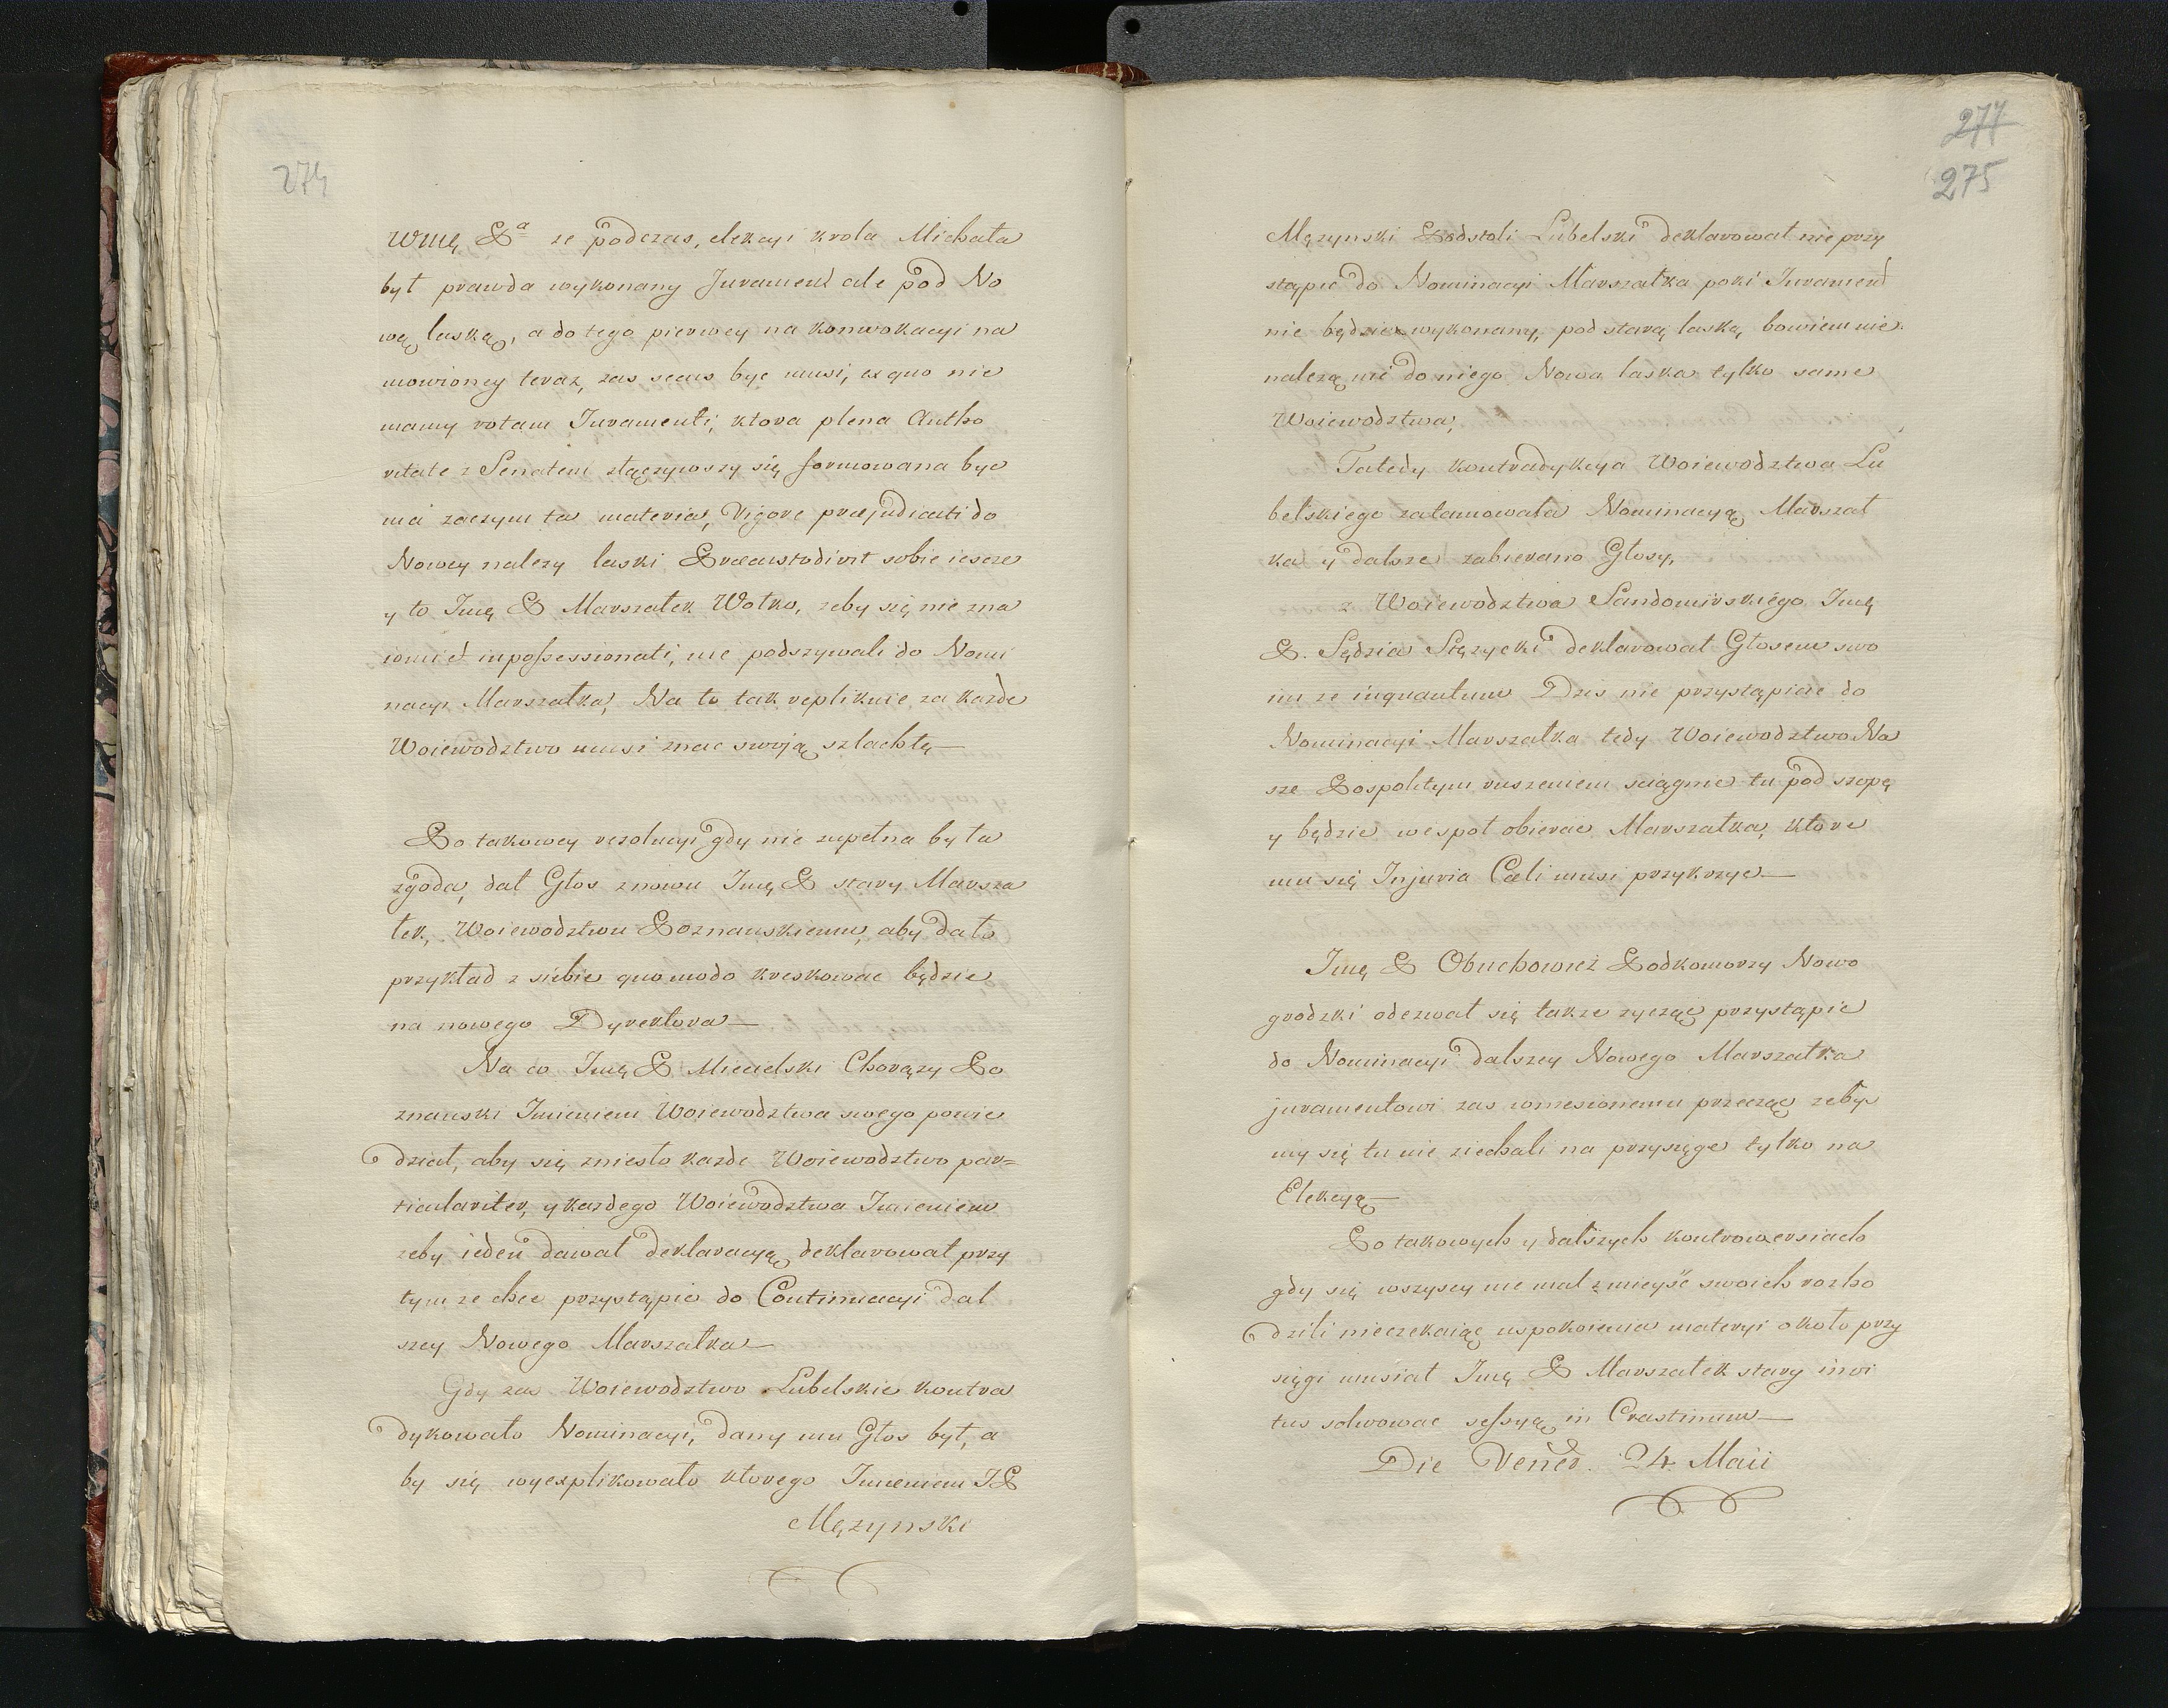 274
WMę Pa ze podczas, elekcyi krola Michała
był prawda wykonany Jurament ale pod No
wą laską, a do tego pierwey na konwokacyi na
mowioney teraz, zas secus byc musi, ex quo nie
mamy rotam Juramenti, ktora plena Autho
ritate z Senatem złączywszy się formowana byc
ma zaczym ta materia, Vigore præjudicati do
Nowey nalezy laski Præcustodivit sobie iescze
y to Jmę P Marszałek Wołko, zeby się nie zna
iomi et inpossessionati, nie podszywali do Nomi
nacyi Marszałka, Na to tak replikuie za kazde
Woiewodztwo musi znac swoją szlachtę—
Po takowey rezolucyi gdy nie zupełna była
zgoda, dał Głos znowu Jmę P stary Marsza
łek, Woiewodztwu Poznanskiemu, aby dało
przykład z siebie quomodo kreskowac będzie
na nowego Dyrektora—
Na co Jmę P Micielski Chorązy Po
znanski Imieniem Woiewodztwa swego powie
dział, aby się zniesło kazde Woiewodztwo par=
ticulariter, y kazdego Woiewodztwa Imieniem
zeby ieden dawał deklaracyą deklarował przy
tym ze chce przystąpic do Continuacyi dal
szey Nowego Marszałka—
Gdy zas Woiewodztwo Lubelskie kontra
dykowało Nominacyi, dany mu Głos był, a
by się wyexplikowało ktorego Imieniem JP
Męzynski
277
275
Męzynski Podstoli Lubelski deklarował nie przy
stąpic do Nominacyi Marszałka poki Jurament
nie będzie wykonany, pod starą laską, bowiem nie
nalezą nie do niego Nowa laska tylko same
Woiewodztwa,
Ta tedy kontradykcya Woiewodztwa Lu
belskiego zatamowała Nominacyą Marszał
ka y dalsze zabierano Głosy,
z Woiewodztwa Sandomirskiego Jmę
P. Sędzia Stęzycki deklarował Głosem swo
im ze inquantum Dzis nie przystąpicie do
Nominacyi Marszałka tedy Woiewodztwo Na
sze Pospolitym ruszeniem sciągnie tu pod szopę
y będzie wespoł obierac Marszałka, ktore
mu się Injuria Cæli musi przykrzyc—
Jmę P Obuchowicz Podkomorzy Nowo
grodzki odezwał się takze zycząc przystąpic
do Nominacyi dalszey Nowego Marszałka
juramentowi zas wniesionemu przecząc zeby
my się tu nie ziechali na przysęge tylko na
Elekcyą—
Po takowych y dalszych kontrowersiach
gdy się wszyscy nie mal z mieysc swoich rozho
dzili nieczekaiąc uspokoienia materyi około przy
sięgi musiał Jmę P Marszałek stary invi
tus solwowac sessyą in Crastinum—
Die Vener. 24 Maii